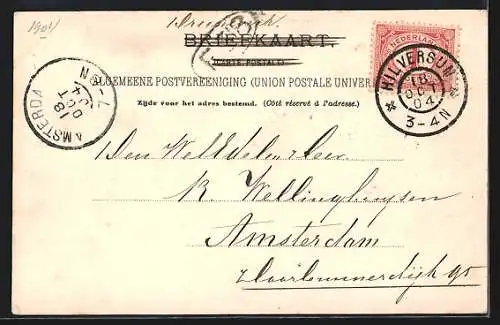 1904
Drukwerk.
BRIEFKAART.
(CARTE POSTALE)
ALGEMEENE POSTVEREENIGING (UNION POSTALE UNIVER
Zijde voor het adres bestemd. (Côté réservé à l'adresse.)
NEDERLAND
HILVERSUM
18 OCT 04
3-4N
AMSTERDA
18 OCT 04
Den Weledelen Heer
R. Wellinghuysen
Amsterdam
95